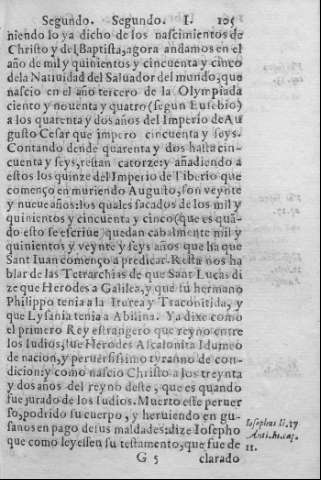 Segundo. Segundo. I. 105
niendo lo ya dicho de los nascimientos de
Christo y del Baptista, agora andamos en el
año de mil y quinientos y cincuenta y cinco
dela Natiuidad del Saluador del mundo, que
nascio en el año tercero de la Olympiada
ciento y nouenta y quatro (segun Eusebio)
a los quarenta y dos años del Imperio de Au
gusto Cesar que impero cincuenta y seys.
Contando dende quarenta y dos hasta cin-
cuenta y seys, restan catorze: y añadiendo a
estos los quinze del Imperio de Tiberio que
començo en muriendo Augusto, son veynte
y nueue años: los quales sacados de los mil y
quinientos y cincuenta y cinco (que es quã-
do esto se escriue) quedan cabalmente mil y
quinientos y veynte y seys años que ha que
Sant Iuan començo a predicar. Resta nos ha
blar de las Tetrarchias de que Sant Lucas di
ze que Herodes a Galilea, y que su hermano
Philippo tenia a la Iturea y Traconitida, y
que Lysania tenia a Abilina. Ya dixe como
el primero Rey estrangero que reyno entre
los Iudios, fue Herodes Ascalonita Idumeo
de nacion, y peruersissimo tyranno de con-
dicion: y como nascio Christo a los treynta
y dos años del reyno deste, que es quando
fue jurado de los Iudios. Muerto este peruer
so, podrido su cuerpo, y heruiendo en gu-
sanos en pago de sus maldades: dize Iosepho
que como leyessen su testamento, que fue de
G 5 clarado
Iosephus li. 17
Anti. Iu. cap.
11.